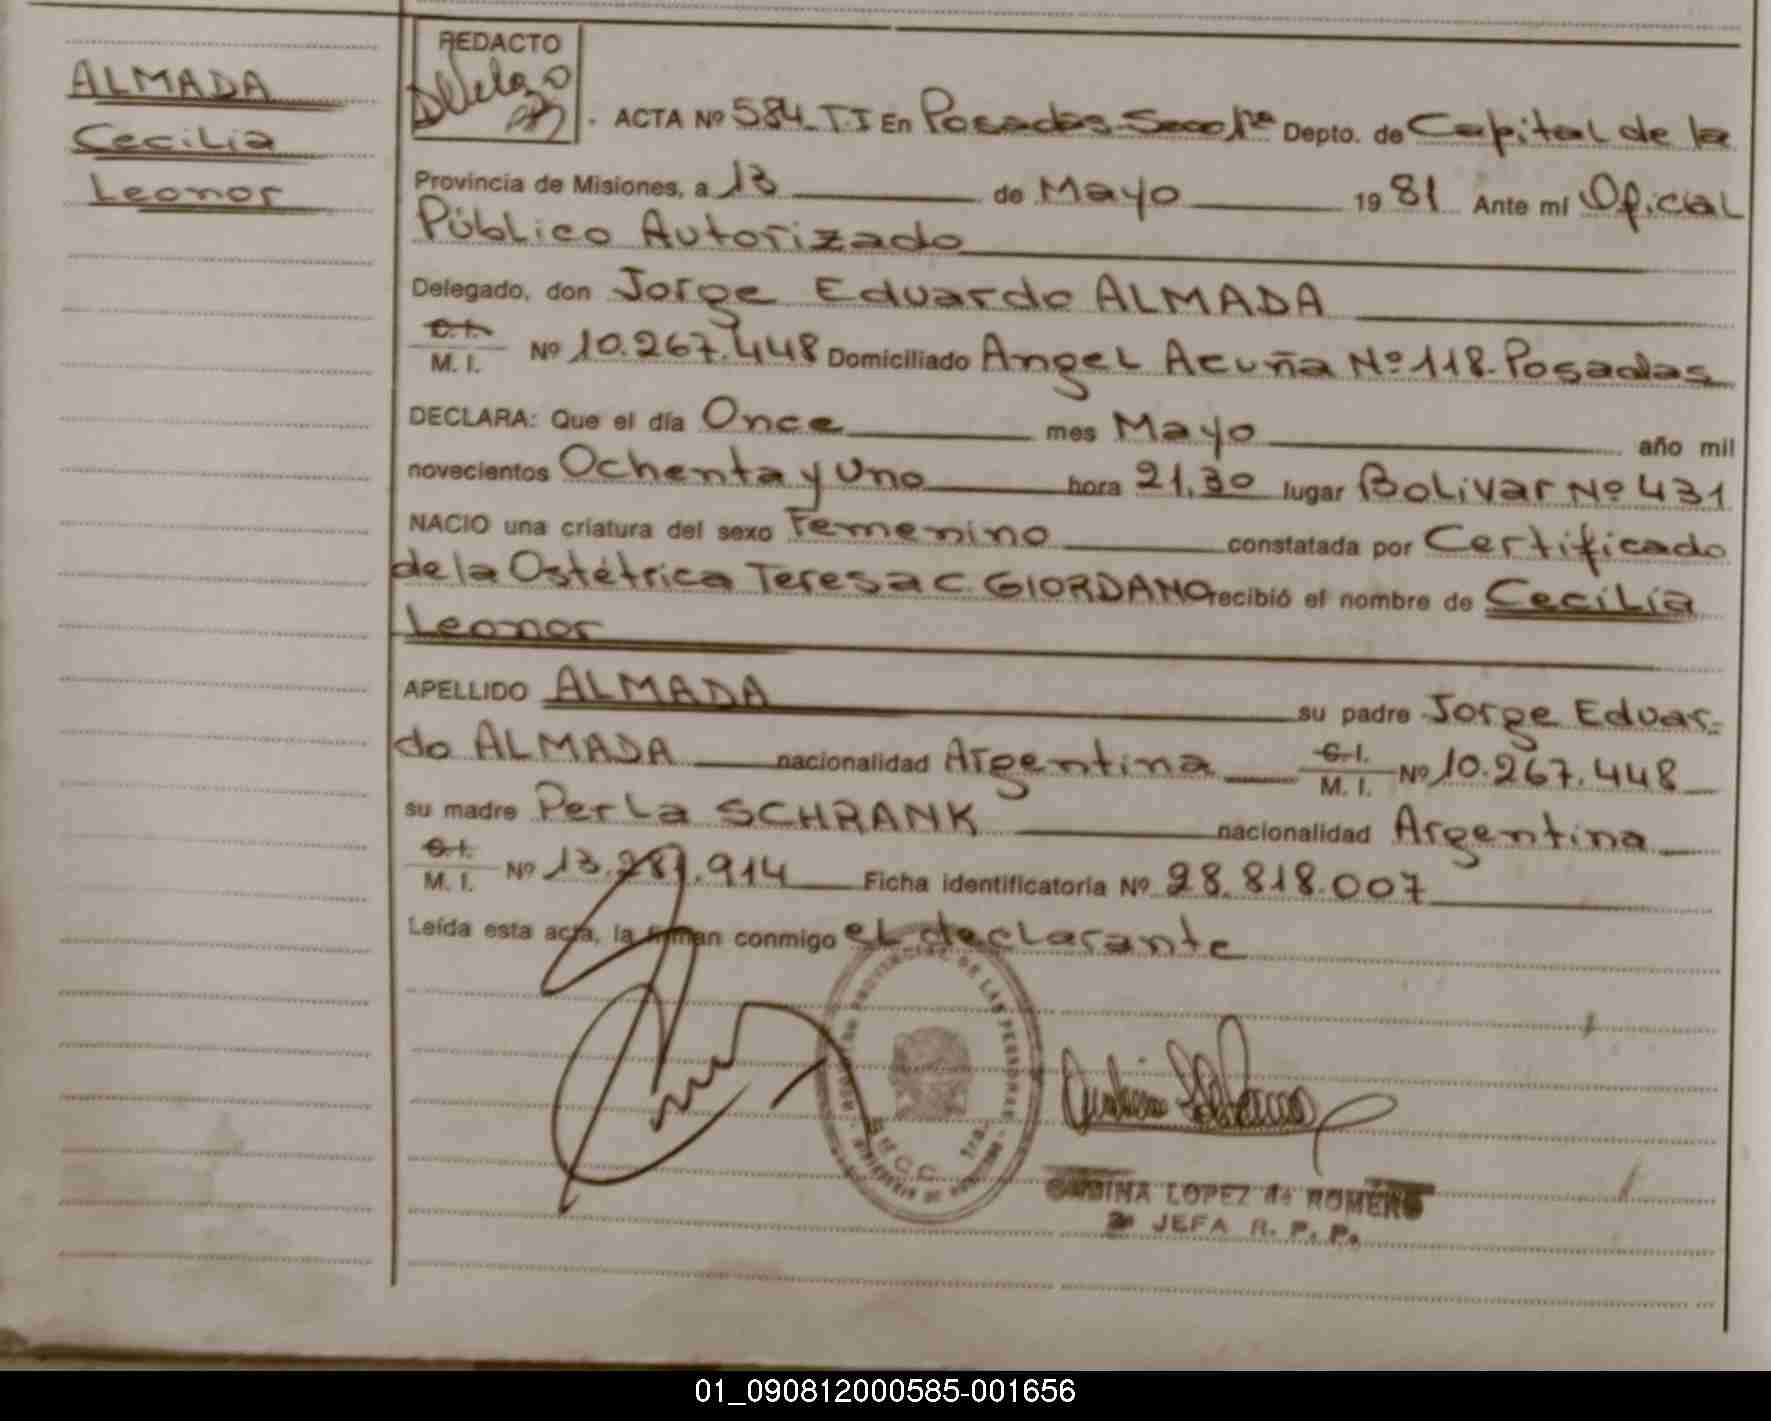 ALMADA
Cecilia
Leonor
REDACTO
ACTA Nº 584 T.I En Posadas Secc 1ra Depto. de Capital de la
Provincia de Misiones, a 13 de Mayo 1981 Ante mí Oficial
Público Autorizado
Delegado, don Jorge Eduardo ALMADA
C.I.
M. I. Nº 10.267.448 Domiciliado Angel Acuña Nº 118. Posadas
DECLARA: Que el día Once mes Mayo año mil
novecientos Ochenta y Uno hora 21,30 lugar Bolivar Nº 431
NACIO una criatura del sexo Femenino constatada por Certificado
de la Ostétrica Teresa C. GIORDANO recibió el nombre de Cecilia
Leonor
APELLIDO ALMADA su padre Jorge Eduar-
do ALMADA nacionalidad Argentina C.I.
M. I. Nº 10.267.448
su madre Perla SCHRANK nacionalidad Argentina
C.I.
M. I. Nº 13.281.914 Ficha identificatoria Nº 28.818.007
Leída esta acta, la firman conmigo el declarante
PROVINCIAL DE LAS PERSONAS
MINISTERIO DE
LOPEZ de ROMERO
2º JEFA R. P. P.
01_090812000585-001656